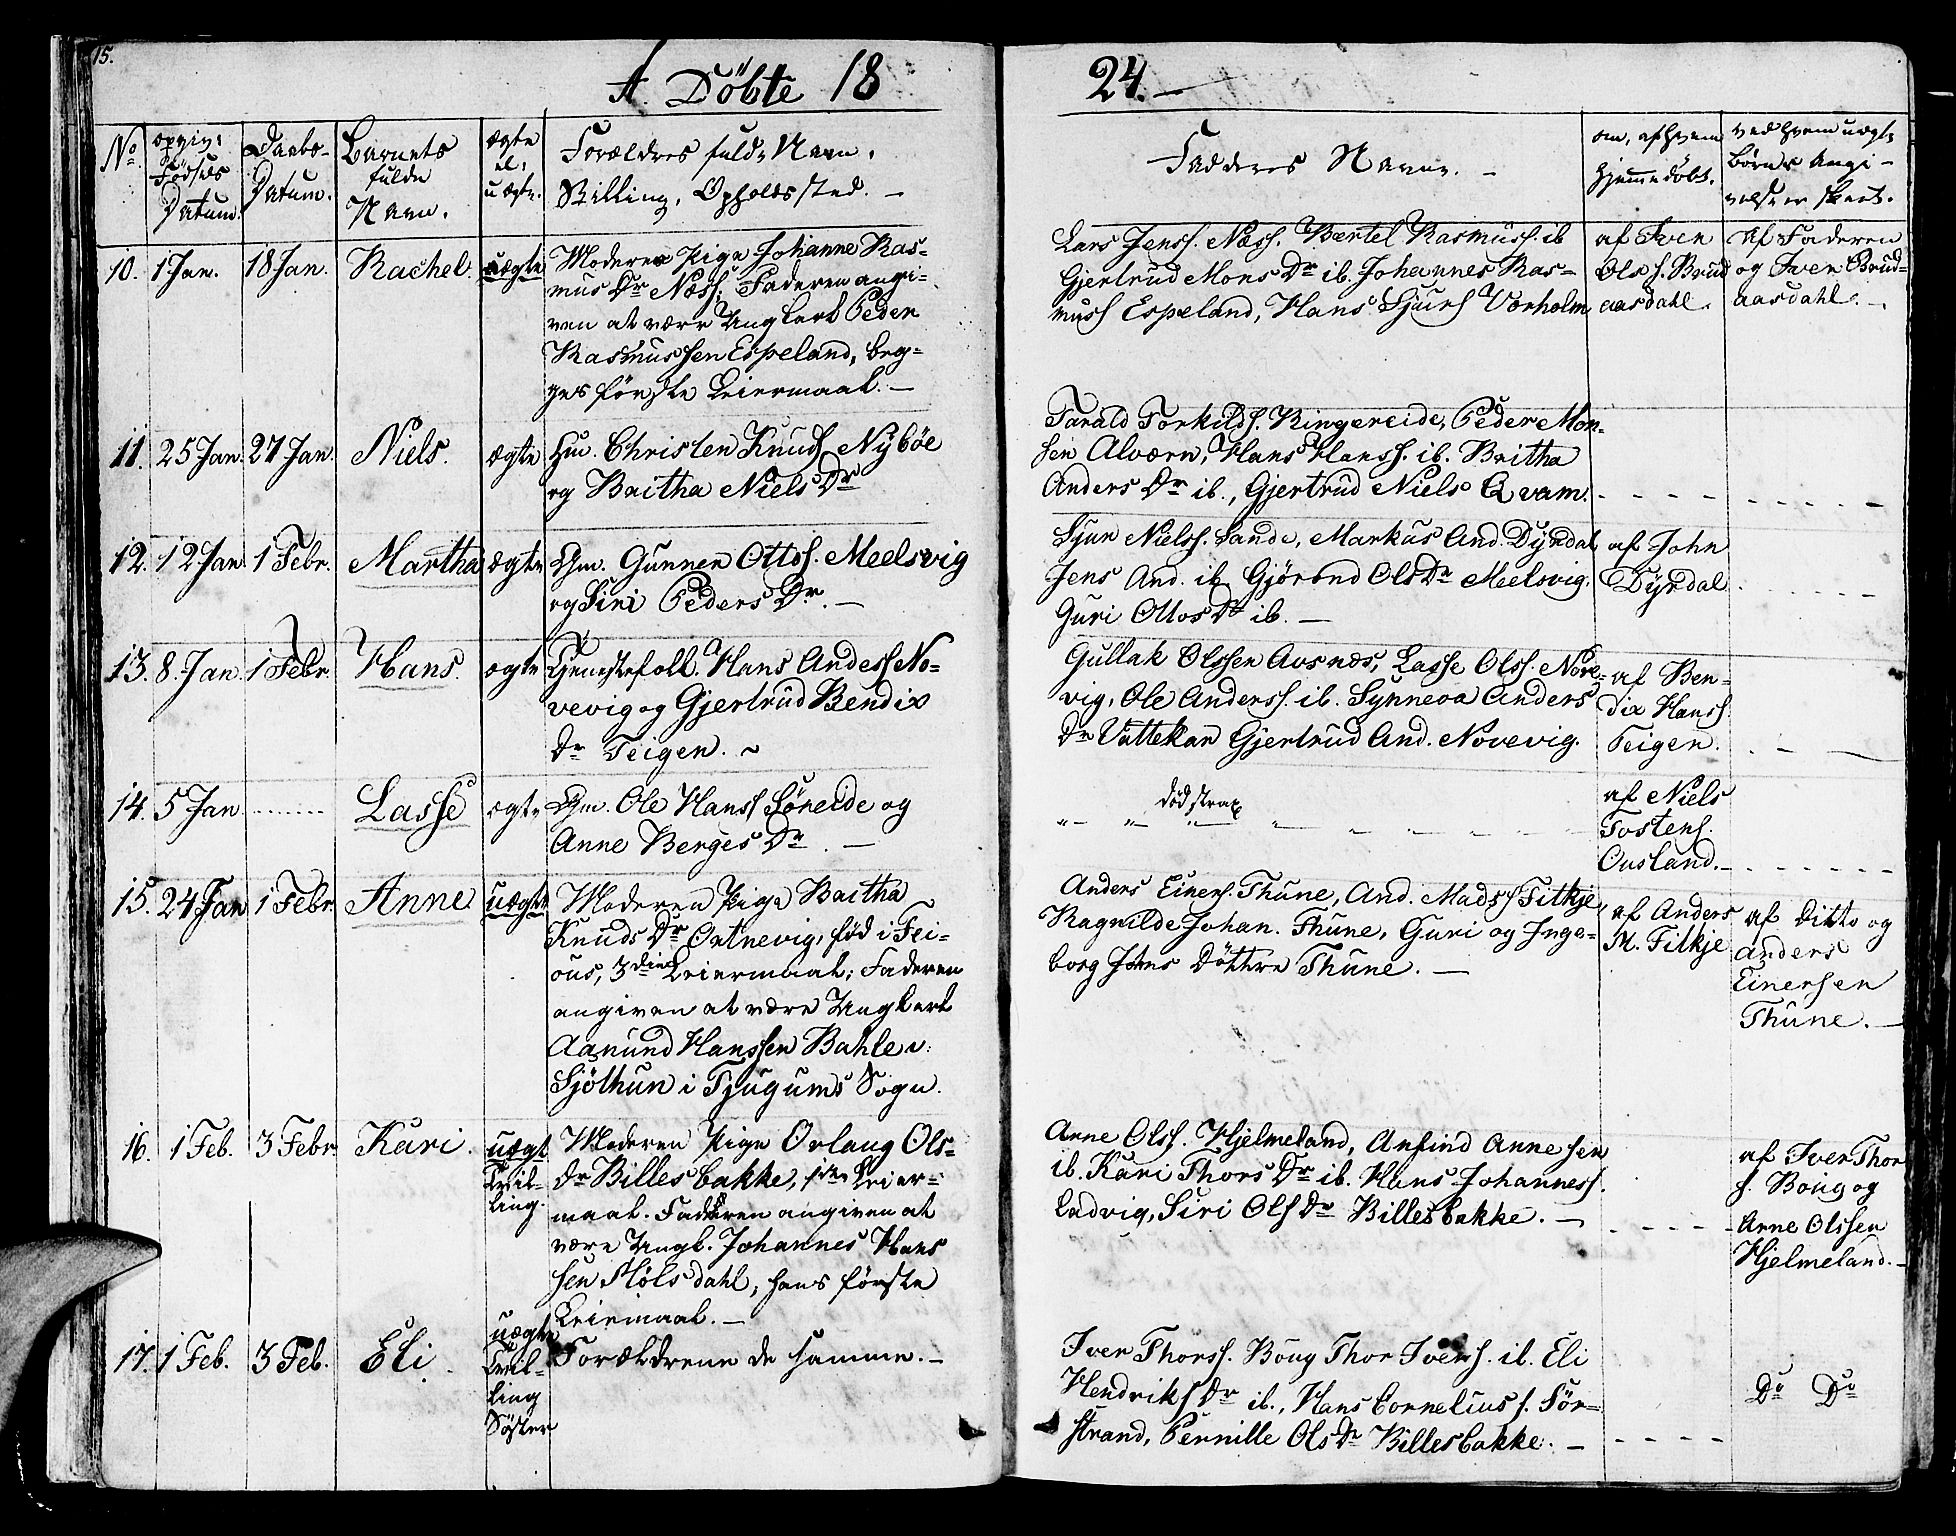 15.
A. Döbte 18
24.
No.
opgiv:
Födsels
Datum.
Daabs-
Datum.
Barnets
fulde
Navn.
ægte
el.
uægte.
Forældres fulde Navn,
Stilling, Opholdssted. —
Fadderes Navne. —
om, af hvem
hjemmedöbt.
ved hvem uægte
börns Angi-
velse er skeet.
10. 1 Jan. 18 Jan. Rachel. uægte
Moderen Pige Johanne Ras-
mus Dr Næss. Faderen angi-
ven at være Ungkarl Peder
Rasmussen Espeland, beg-
ges förste Leiermaal. —
Lars Jenss. Næss. Bertel Rasmuss. ib
Gjertrud Mons Dr ib. Johannes Ras-
muss Espeland, Hans Sjurs Varholm
af Iver
Ols s. Brud
aasdahl.
Af Faderen
og Iver Brud-
aasdahl. —
11. 25 Jan. 27 Jan. Niels. ægte
Hm. Christen Knuds. Nyböe
og Britha Niels Dr
Tarald Torkilds. Ringereide, Peder Mon-
sen Alværn, Hans Hanss. ib. Britha
Anders Dr ib., Gjertrud Niels Qvam.
12. 12 Jan. 1 Febr. Martha ægte
Hm. Gunner Ottos. Meelsvig
og Siri Peders Dr. —
Sjur Nielss. Sande, Markus And. Dyrdal,
Jens And. ib Gjörand Ols Dr Meelsvig.
Guri Ottos Dr ib. —
af John
Dyrdal
13. 8. Jan. 1 Febr. Hans. ægte
Tjenestefolk. Hans Anderss No-
vevig og Gjertrud Bendix
Dr Teigen. ~
Gullak Olssen Avsnæs, Lasse Olss. Nove-
vig, Ole Anderss. ib. Synneva Anders
Dr Vattekar Gjertrud And. Novevig.
af Ben-
dix Hanss
Teigen.
14. 5 Jan. Lasse ægte
Hm. Ole Hanss Söreide og
Anne Berges Dr. —
död strax
af Niels
Tostens.
Ousland.
15. 24 Jan 1 Febr. Anne uægte
Moderen Pige Britha
Knuds Dr Ortnevig, föd i Fei-
ous, 3die Leiermaal; Faderen
angiven at være Ungkarl
Aamund Hanssen Bahle v.
Sjöthun i Tjugums Sogn.
Anders Einers. Thune, And. Mads s Fitkje,
Ragnilde Johan. Thune, Guri og Inge-
borg Jens Döttre Thune. —
af Anders
M. Fitkje
af Ditto og
Anders
Einersen
Thune. —
16. 1 Feb. 3 Febr. Kari. uægt
Tvil-
ling.
Moderen Pige Orlaug Ols-
dr Billesbakke, Leier-
maal. Faderen angiven at
være Ungk. Johannes Hans
sen Flölsdahl, hans förste
Leiermaal. —
Arne Olss. Hjelmeland, Anfind Annesen
ib. Kari Thors Dr ib. Hans Johanness.
Ladvig, Siri Ols Dr Billesbakke. —
af Iver Thor
s. Boug og
Arne Olssen
Hjelmeland. —
17. 1 Feb. 3 Feb. Eli. uægte
Tvil-
ling
Söster
Forældrene de samme. —
Iver Thorss. Boug Thor Ivers. ib. Eli
Hendriks Dr ib., Hans Cornelius s. Sör-
strand, Pernille Ols Dr Billesbakke. —
Do Do